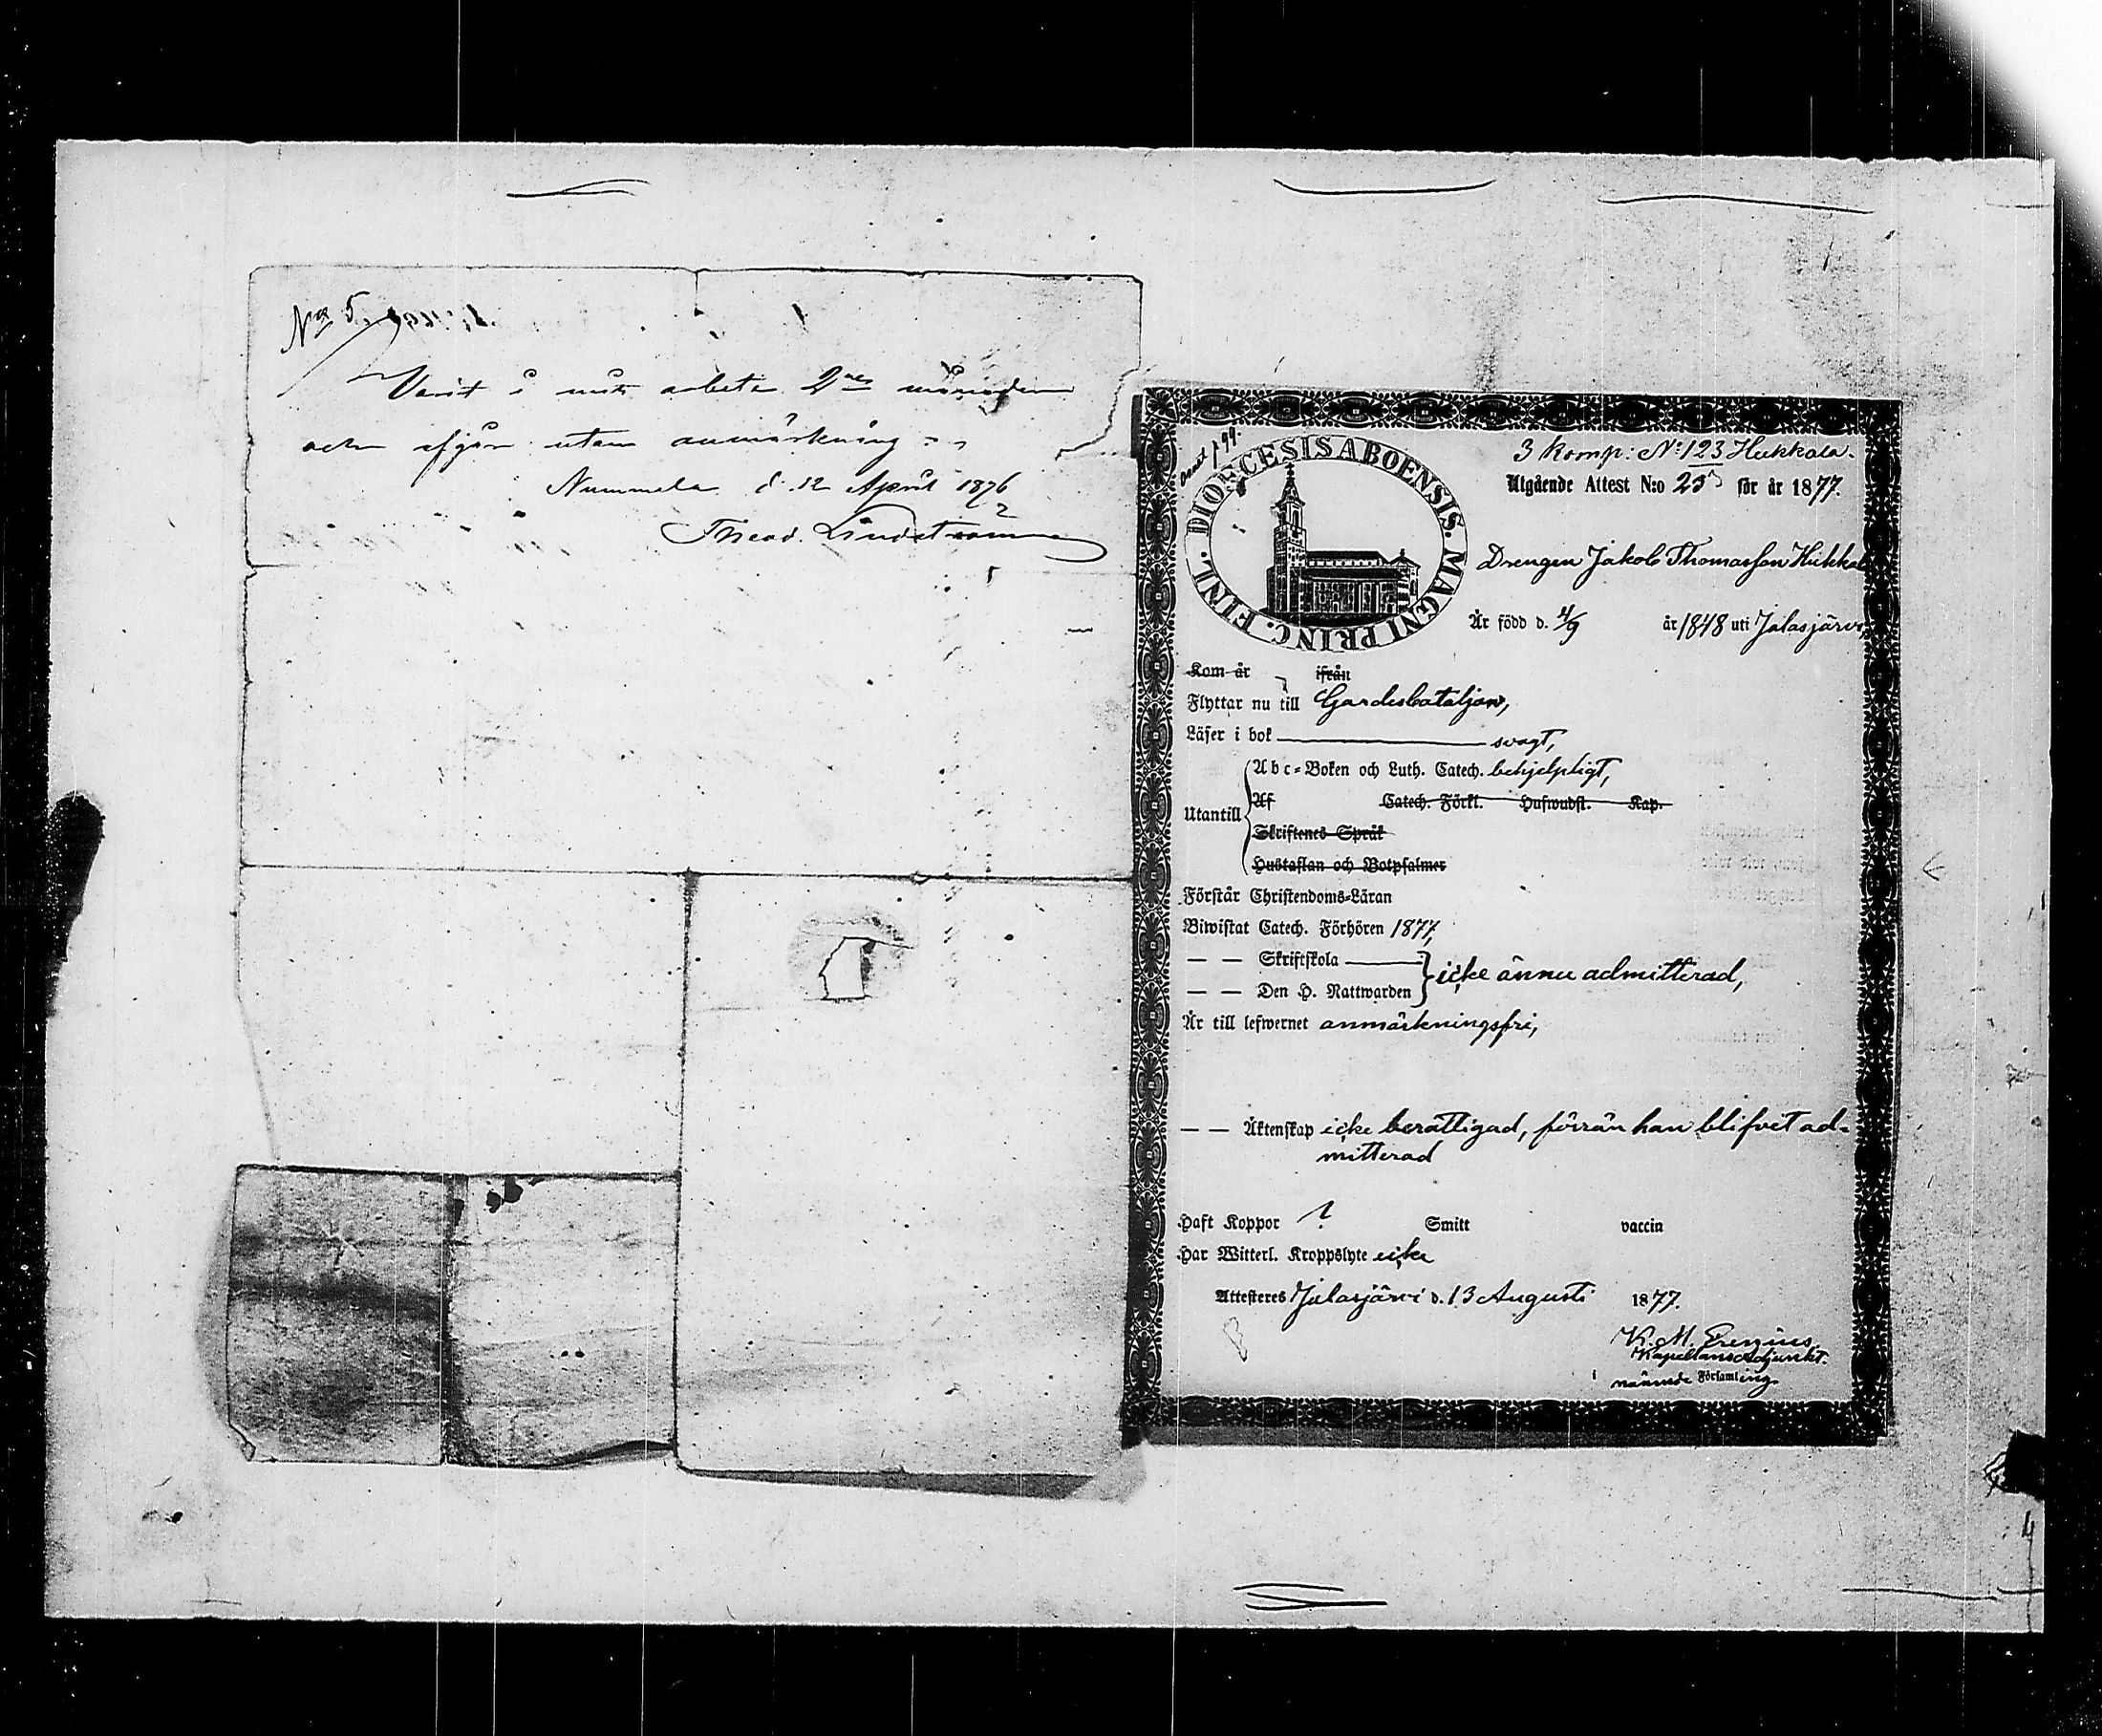 No 5.
Varit i mitt arbete 2ne månader
och afgår utan anmärkning
Nummela d. 12 April 1876
Theod. Lindström
3 Komp: No 123 Hukkala.
Utgående Attest N:o 25 för år 1877.
DIOECESIS ABOENSIS. MAGNI PRINC. FINL.
Drengen Jakob Thomasson Hukkala
Är född d. 4/9 år 1848 uti Jalasjärvi,
Kom år ifrån
Flyttar nu till Gardesbataljon,
Läser i bok svagt,
Abc-Boken och Luth. Catech. behjelpligt,
Af Catech. Förkl. Hufwudst. Kap.
Utantill
Skriftenes Språk
Hustaflan och Botpsalmer
Förstår Christendoms-Läran
Biwistat Catech. Förhören 1877,
— — Skriftskola
icke ännu admitterad,
— — Den H. Nattwarden
Är till lefwernet anmärkningsfri,
— — Äktenskap icke berättigad, förrän han blifvit ad-
mitterad
Haft Koppor ? Smitt vaccin
Har Witterl. Kroppslyte icke
Attesteres Jalasjärvi d. 13 Augusti 1877.
K. M.
Kapellansadjunkt.
i nämnde Församling